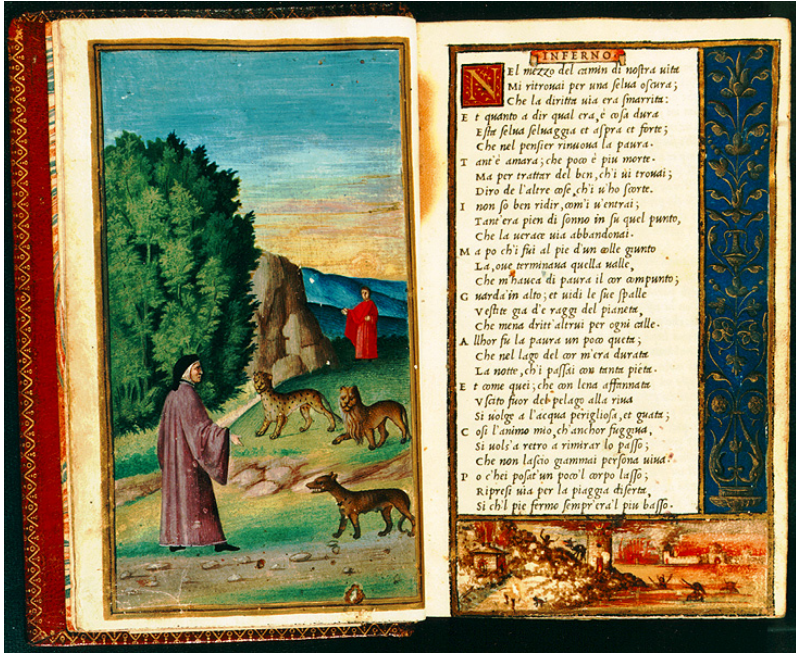 INFERNO
NEl mezzo del camin di nostra uita
Mi ritrouai per una selua oscura;
Che la diritta uia era smarrita:
E t quanto a dir qual era, è cosa dura
Esta selua seluaggia et aspra et forte;
Che nel pensier rinuoua la paura.
T ant'è amara; che poco è piu morte.
Ma per trattar del ben, ch'i ui trouai;
Diro de l'altre cose, ch'i u'ho scorte.
I non so ben ridir, com'i u'entrai;
Tant'era pien di sonno in su quel punto,
Che la uerace uia abbandonai.
M a po ch'i fui al pie d'un colle giunto
La, oue terminaua quella ualle,
Che m'hauea di paura il cor compunto;
G uarda'in alto; et uidi le sue spalle
Vestite gia d'e raggi del pianeta,
Che mena dritt'altrui per ogni calle.
A llhor fu la paura un poco queta;
Che nel lago del cor m'era durata
La notte, ch'i passai con tanta pieta.
E t come quei; che con lena affannata
Vscito fuor del pelago alla riua
Si uolge a l'acqua perigliosa, et guata;
C osi l'animo mio, ch'anchor fuggiua,
Si uols'a retro a rimirar lo passo;
Che non lascio giammai persona uiua.
P o c'hei posat'un poco'l corpo lasso;
Ripresi uia per la piaggia diserta,
Si ch'l pie fermo sempr'era'l piu basso.